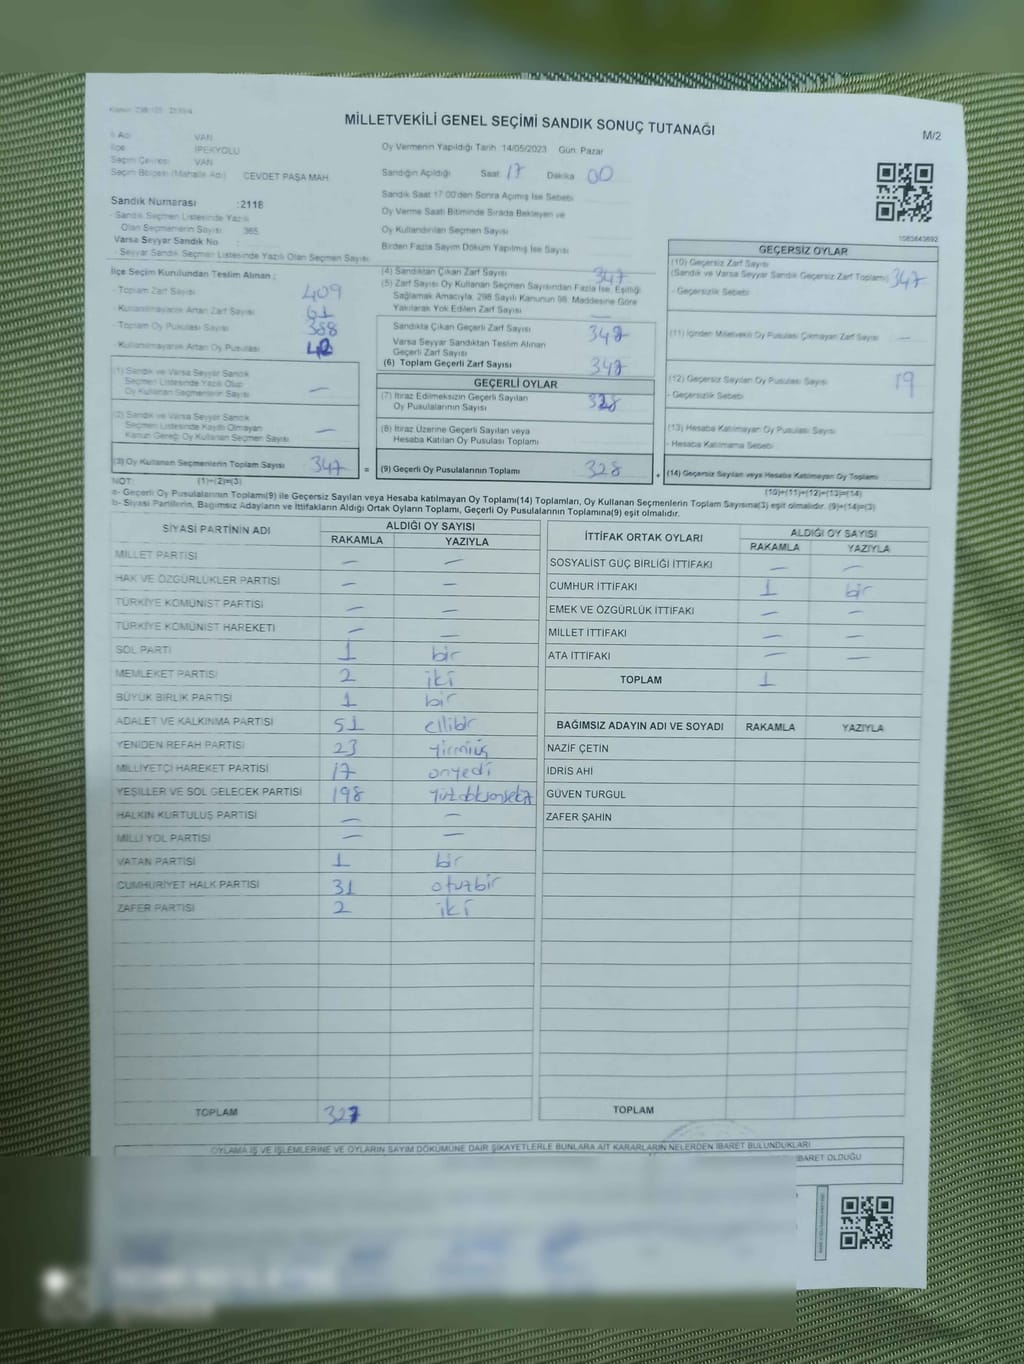 MİLLETVEKİLİ GENEL SEÇİMİ SANDIK SONUÇ TUTANAĞI
M/2
İl Adı VAN
İlçe İPEKYOLU
Seçim Çevresi VAN
Seçim Bölgesi (Mahalle Adı) CEVDET PAŞA MAH.
Sandık Numarası :2118
- Sandık Seçmen Listesinde Yazılı
Olan Seçmenlerin Sayısı : 365
Varsa Seyyar Sandık No :
- Seyyar Sandık Seçmen Listesinde Yazılı Olan Seçmen Sayısı
Oy Vermenin Yapıldığı Tarih 14/05/2023 Gün: Pazar
Sandığın Açıldığı Saat: 17 Dakika 00
Sandık Saat 17:00'den Sonra Açılmış İse Sebebi
Oy Verme Saati Bitiminde Sırada Bekleyen ve
Oy Kullandırılan Seçmen Sayısı
Birden Fazla Sayım Döküm Yapılmış İse Sayısı
İlçe Seçim Kurulundan Teslim Alınan ;
- Toplam Zarf Sayısı 409
- Kullanılmayarak Artan Zarf Sayısı 61
- Toplam Oy Pusulası Sayısı 388
- Kullanılmayarak Artan Oy Pusulası
(1) Sandık ve Varsa Seyyar Sandık
Seçmen Listesinde Yazılı Olup
Oy Kullanan Seçmenlerin Sayısı —
(2) Sandık ve Varsa Seyyar Sandık
Seçmen Listesinde Kayıtlı Olmayan
Kanun Gereği Oy Kullanan Seçmen Sayısı —
(3) Oy Kullanan Seçmenlerin Toplam Sayısı 347 =
(4) Sandıktan Çıkan Zarf Sayısı 347
(5) Zarf Sayısı Oy Kullanan Seçmen Sayısından Fazla İse, Eşitliği
Sağlamak Amacıyla, 298 Sayılı Kanunun 98. Maddesine Göre
Yakılarak Yok Edilen Zarf Sayısı —
Sandıkta Çıkan Geçerli Zarf Sayısı 347
Varsa Seyyar Sandıktan Teslim Alınan
Geçerli Zarf Sayısı
(6) Toplam Geçerli Zarf Sayısı 347
GEÇERLİ OYLAR
(7) İtiraz Edilmeksizin Geçerli Sayılan
Oy Pusulalarının Sayısı 328
(8) İtiraz Üzerine Geçerli Sayılan veya
Hesaba Katılan Oy Pusulası Toplamı
(9) Geçerli Oy Pusulalarının Toplamı 328 +
GEÇERSİZ OYLAR
(10) Geçersiz Zarf Sayısı
(Sandık ve Varsa Seyyar Sandık Geçersiz Zarf Toplamı) 347
- Geçersizlik Sebebi
(11) İçinden Milletvekili Oy Pusulası Çıkmayan Zarf Sayısı —
(12) Geçersiz Sayılan Oy Pusulası Sayısı 19
- Geçersizlik Sebebi
(13) Hesaba Katılmayan Oy Pusulası Sayısı
- Hesaba Katılmama Sebebi
(14) Geçersiz Sayılan veya Hesaba Katılmayan Oy Pusulası Toplamı
NOT: (1)+(2)=(3) (10)+(11)+(12)+(13)=(14)
a- Geçerli Oy Pusulalarının Toplamı(9) ile Geçersiz Sayılan veya Hesaba katılmayan Oy Toplamı(14) Toplamları, Oy Kullanan Seçmenlerin Toplam Sayısına(3) eşit olmalıdır. (9)+(14)=(3)
b- Siyasi Partilerin, Bağımsız Adayların ve İttifakların Aldığı Ortak Oyların Toplamı, Geçerli Oy Pusulalarının Toplamına(9) eşit olmalıdır.
SİYASİ PARTİNİN ADI ALDIĞI OY SAYISI
RAKAMLA YAZIYLA
MİLLET PARTİSİ — —
HAK VE ÖZGÜRLÜKLER PARTİSİ — —
TÜRKİYE KOMÜNİST PARTİSİ — —
TÜRKİYE KOMÜNİST HAREKETİ — —
SOL PARTİ 1 bir
MEMLEKET PARTİSİ 2 iki
BÜYÜK BİRLİK PARTİSİ 1 bir
ADALET VE KALKINMA PARTİSİ 51 ellibir
YENİDEN REFAH PARTİSİ 23 yirmiüç
MİLLİYETÇİ HAREKET PARTİSİ 17 onyedi
YEŞİLLER VE SOL GELECEK PARTİSİ 198
HALKIN KURTULUŞ PARTİSİ — —
MİLLİ YOL PARTİSİ — —
VATAN PARTİSİ 1 bir
CUMHURİYET HALK PARTİSİ 31 otuzbir
ZAFER PARTİSİ 2 iki
TOPLAM 327
İTTİFAK ORTAK OYLARI ALDIĞI OY SAYISI
RAKAMLA YAZIYLA
SOSYALİST GÜÇ BİRLİĞİ İTTİFAKI — —
CUMHUR İTTİFAKI 1 bir
EMEK VE ÖZGÜRLÜK İTTİFAKI — —
MİLLET İTTİFAKI — —
ATA İTTİFAKI — —
TOPLAM 1
BAĞIMSIZ ADAYIN ADI VE SOYADI RAKAMLA YAZIYLA
NAZİF ÇETİN
İDRİS AHI
GÜVEN TURGUL
ZAFER ŞAHİN
TOPLAM
OYLAMA İŞ VE İŞLEMLERİNE VE OYLARIN SAYIM DÖKÜMÜNE DAİR ŞİKAYETLERLE BUNLARA AİT KARARLARIN NELERDEN İBARET BULUNDUKLARI
İBARET OLDUĞU